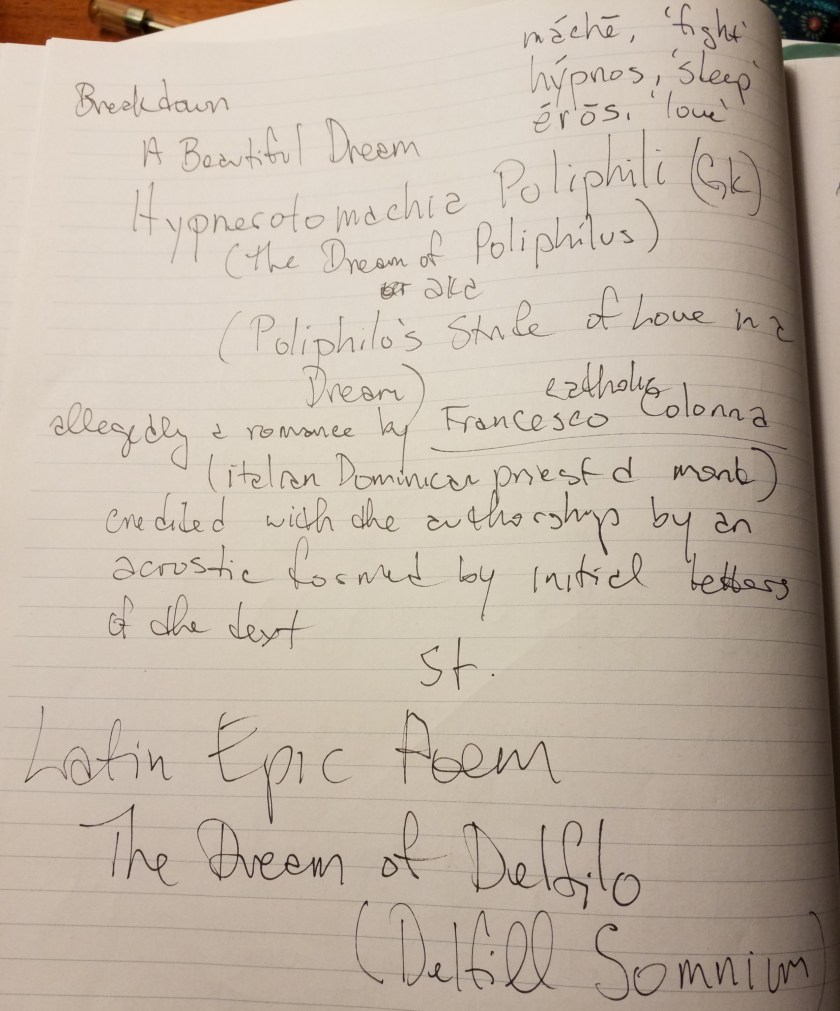 máchē, 'fight'
hýpnos, 'sleep'
érōs, 'love'
Breakdown
A Beautiful Dream
Hypnerotomachia Poliphili (Gk)
(the Dream of Poliphilus)
aka
(Poliphilo's Strife of Love in a
Dream)
catholic
allegedly a romance by Francesco Colonna
(italian Dominican priest d monk)
credited with the authorship by an
acrostic formed by initial letters
of the text
St.
Latin Epic Poem
The Dream of Delfilo
(Delfill Somnium)